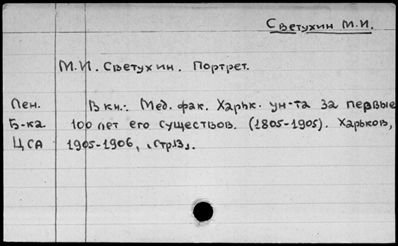 Светухин М.И.
М.И. Светухин. Портрет.
Лен. В кн.: Мед. фак. Харьк. ун-та за первые
Б-ка 100 лет его существов. (1805-1905). Харьков,
ЦСА 1905-1906, &lt;стр13&gt;.